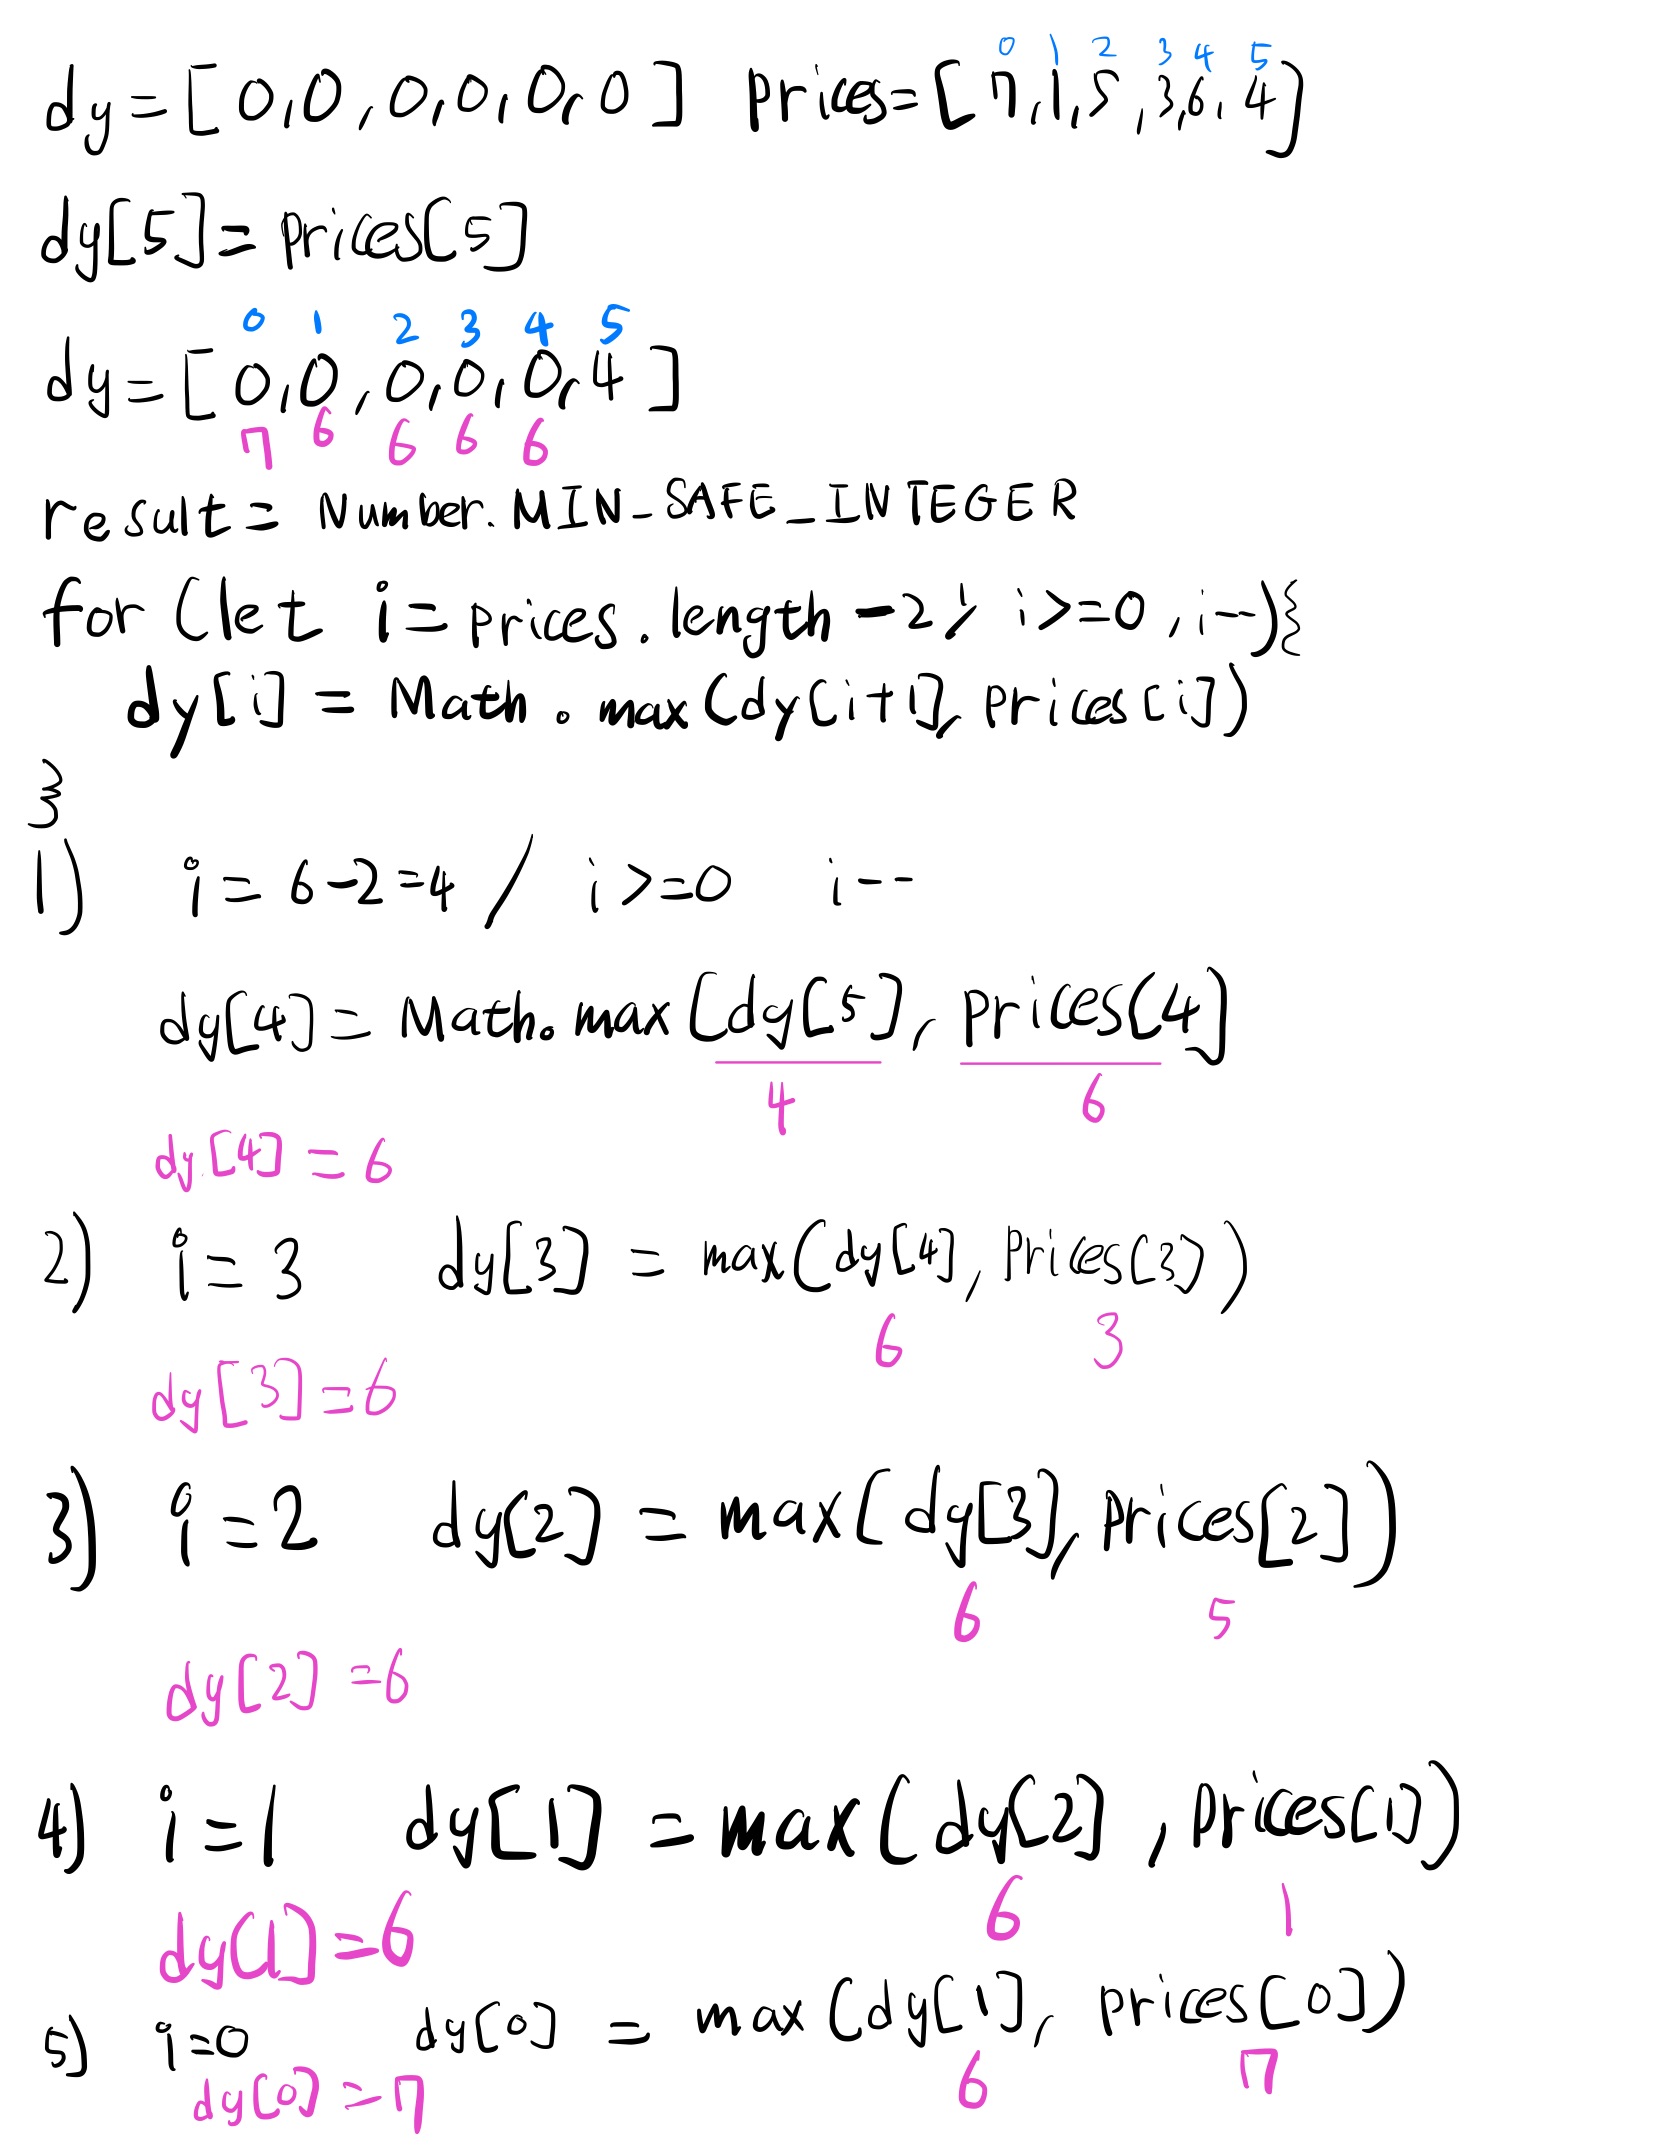 0 1 2 3 4 5
dy = [ 0, 0, 0, 0, 0, 0 ] prices = [ 7, 1, 5, 3, 6, 4 ]
dy[5] = prices[5]
0 1 2 3 4 5
dy = [ 0, 0, 0, 0, 0, 4 ]
7 6 6 6 6
result = Number.MIN_SAFE_INTEGER
for (let i = prices.length - 2, i >= 0, i--){
dy[i] = Math.max(dy[i+1], prices[i])
}
1) i = 6-2=4 / i >= 0 i--
dy[4] = Math.max(dy[5], prices[4]
4 6
dy[4] = 6
2) i = 3 dy[3] = max(dy[4], Prices[3])
6 3
dy[3] = 6
3) i = 2 dy[2] = max(dy[3], prices[2])
6 5
dy[2] = 6
4) i = 1 dy[1] = max(dy[2], prices[1])
6 1
dy[1] = 6
5) i=0 dy[0] = max(dy[1], prices[0])
6 7
dy[0] = 7